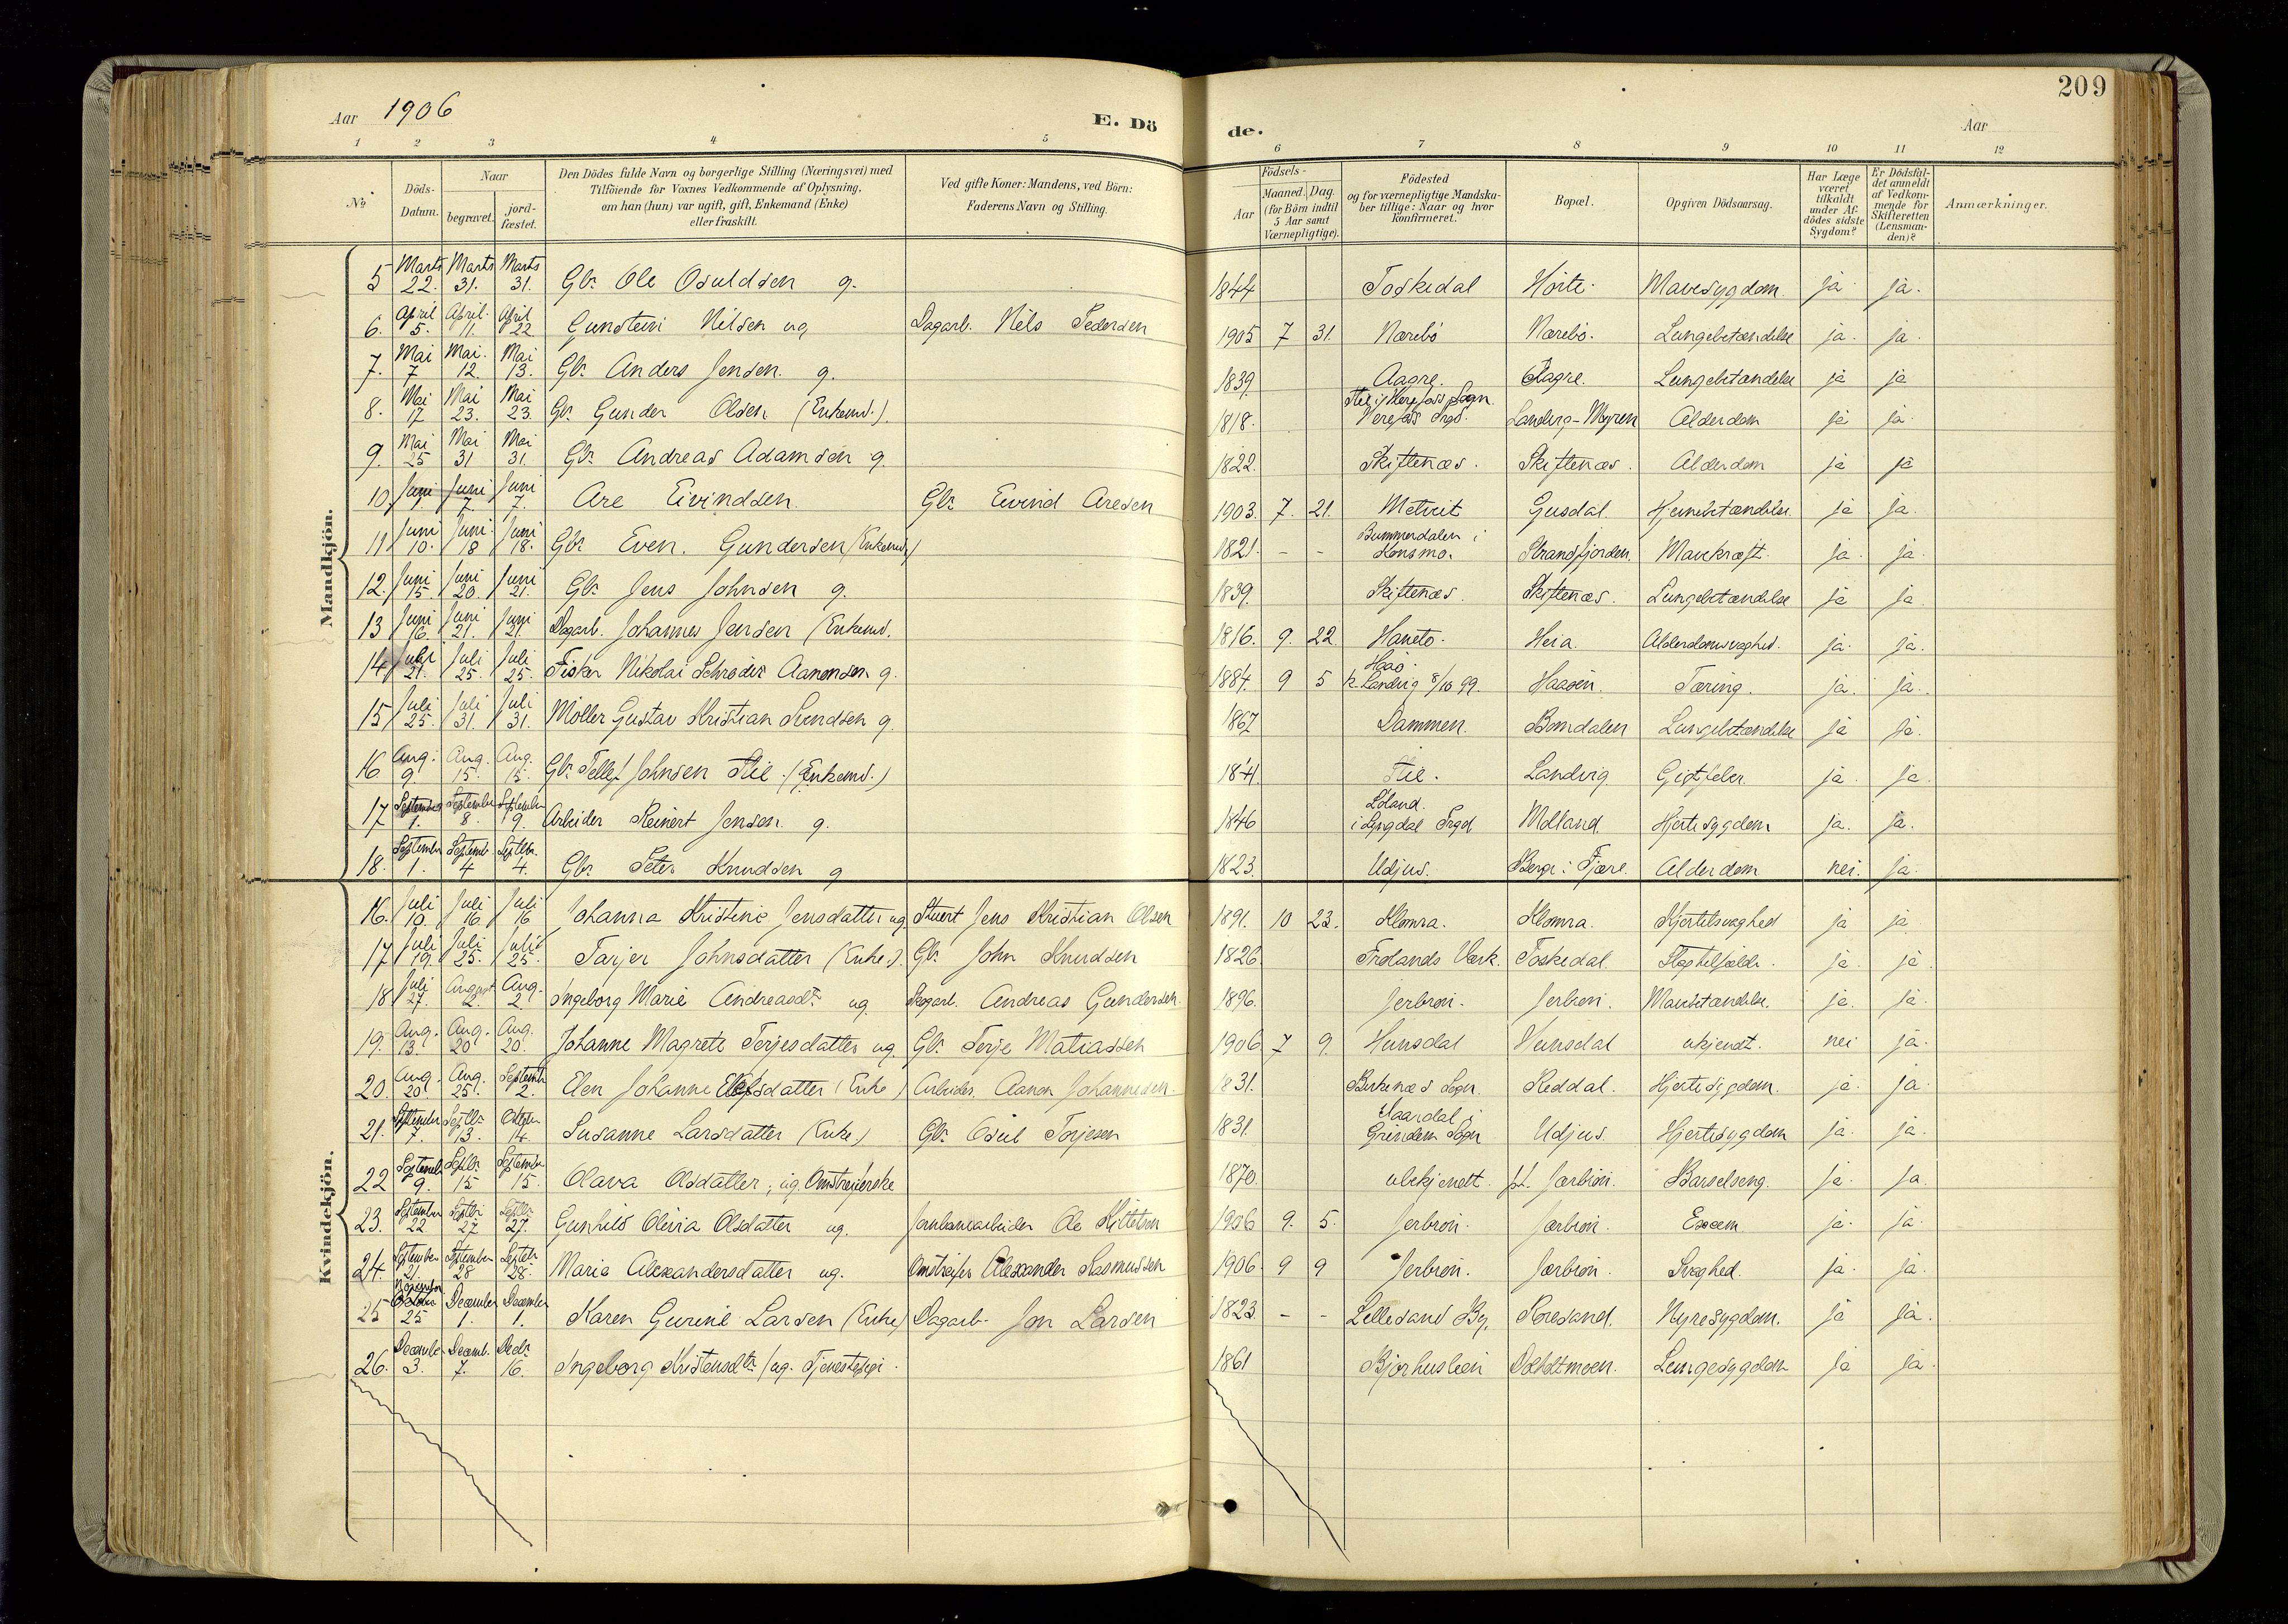 209
Aar 1906
E. Dö
de.
Aar
1 2 3 4 5 6 7 8 9 10 11 12
No
Döds-Datum.
Naar
begravet.
jordfæstet.
Den Dödes fulde Navn og borgerlige Stilling (Næringsvei) med
Tilföiende for Voxnes Vedkommende af Oplysning,
om han (hun) var ugift, gift, Enkemand (Enke)
eller fraskilt.
Ved gifte Koner: Mandens, ved Börn:
Faderens Navn og Stilling.
Födsels-
Aar
Maaned. Dag.
(for Börn indtil
5 Aar samt
Værnepligtige).
Födested
og for værnepligtige Mandska-
ber tillige: Naar og hvor
konfirmeret.
Bopæl.
Opgiven Dödsaarsag.
Har Læge
været
tilkaldt
under Af-
dödes sidste
Sygdom?
Er Dödsfal-
det anmeldt
af Vedkom-
mende for
Skifteretten
(Lensman-
den)?
Anmærkninger.
Mandkjön.
5 Marts 22. Marts 31. Marts 31. Gbr. Ole Osuldsen g. 1844 Toskedal Hörte Mavesygdom. ja ja.
6. April 5. April 11. April 22 Gunstein Nilsen ug Dagarb. Nils Pedersen 1905 7 31. Nærebö Nærebö. Lungebetændelse ja. ja.
7. Mai 7 Mai 12. Mai 13. Gbr. Anders Jensen. g. 1839. Aagre. Aagre. Lungebetændelse ja ja
8. Mai 17 Mai 23. Mai 23. Gbr. Gunder Olsen (Enkemd.). 1818. Landvig-Myren Alderdom ja ja.
9. Mai 25 Mai 31 Mai 31. Gbr. Andreas Adamsen g. 1822. Skiftenæs. Skiftenæs. Alderdom ja ja
10. Juni Juni 7. Juni 7. Are Eivindsen. Gbr. Eivind Aresen 1903. 7. 21. Metveit Gusdal. Hjernebetændelse. ja ja.
11. Juni 10. Juni 18 Juni 18. Gbr. Even. Gundersen (Enkemd.) 1821. - - i Konsmo. Strandfjorden. Mavekræft. ja. ja.
12. Juni 15. Juni 20. Juni 21. Gbr. Jens Johnsen g. 1839. Skiftenæs. Skiftenæs. Lungebetændelse ja ja.
13 Juni 16. Juni 21. Juni 21. Dagarb. Johannes Jensen (Enkemd. 1816. 9. 22. Haneto. Heia. Alderdomssvaghed. ja. ja.
14 Juli 21. Juli 25. Juli 25. Fisker Nikolai Schrøder Aanonsen g. 1884. 9 5 Haaö. k. Landvig 8/10 99. Haaöen. Tæring. ja. ja.
15 Juli 25. Juli 31. Juli 31. Möller Gustav Kristian Svendsen g. 1867 Dammen. Bomdalen Lungebetændelse ja ja.
16 Aug. 9. Aug. 15. Aug. 15. Gbr. Tellef Johnsen Stie. (Enkemd.) 1841. Stie. Landvig. Gigtfeber. ja. ja
17 September 1. September 8. September 9. Arbeider Reinert Jensen. g. 1846 i Lyngdal Prgd. Molland. Hjertesygdom ja. ja.
18. September 1. Septemb. 4 Septbr. 4. Gbr. Peter Knudsen g 1823. Udjus. Berge i Fjære. Alderdom nei. ja.
Kvindekjön.
16. Juli 10. Juli 16. Juli 16 Johanna Kristine Jensdatter ug. Stuert Jens Kristian Olsen 1891. 10 23. Klomra. Klomra. Hjertesvaghed ja ja
17 Juli 19. Juli 25. Juli 25. Tarjer Johnsdatter (Enke). Gbr. John Knudsen 1826. Frolands Værk. Toskedal. ja. ja
18 Juli 27. August 2. Aug. 2. Ingeborg Marie Andreasdtr. ug Dagarb. Andreas Gundersen. 1896. Jerbron. Jerbron. Mavebetændelse. ja. ja.
19. Aug. 13. Aug. 20 Aug. 20. Johanne Magrete Terjesdatter ug. Gbr. Terje Matiassen 1906 7 9. Hunsdal Hunsdal ukjendt. nei ja.
20. Aug. 20. Aug. 25. Septemb. 2. Elen Johanne (Enke) Arbeider. Aanon Johannesen. 1831. Birkenæs Sogn. Reddal. Hjertesygdom. ja. ja.
21. September 7. Septbr. 13. 14. Susanne Larsdatter (Enke) Gbr. Osul Torjesen 1831. i Grindem Sogn Udjus. Hjertesygdom ja. ja.
22 Septemb. 9. Septbr. 15 September 15. Olava Olsdatter, ug. Omstreiferske 1870. ubekjendt. pt. Jærbron. Barselseng. ja. ja.
23. September 22 Septbr. 27 Septbr. 27. Gunhild Olivia Olsdatter ug. Jernbanearbeider Ole Kittelsen 1906 9. 5. Jerbron. Jærbron. Exem ja. ja.
24. September 21. September 28 Septbr. 28. Marie Alexandersdatter ug. Omstreifer Alexander Rasmussen 1906. 9 9 Jerbron. Jærbron. Svaghed. ja. ja.
25 November 25 December 1. December 1. Karen Gurine Larsen (Enke) Dagarb. Jon Larsen 1823. - - Lillesand By. Roresand. Nyresygdom. ja ja.
26. December 3. Decemb. 7. Decbr. 16. Ingeborg Kristensdtr. (ug. Tjenestepige. 1861 Lungesygdom ja ja.